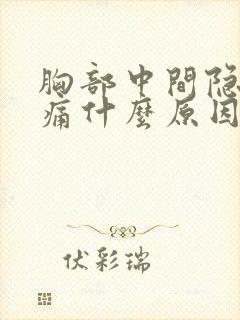 胸部中間隐
痛什麼原因
伏彩瑞